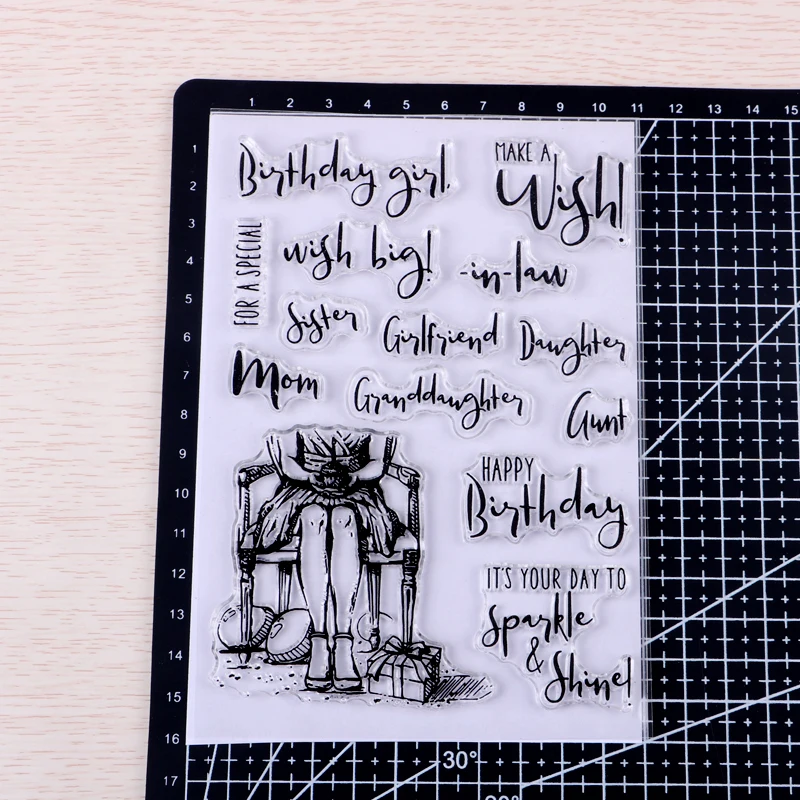 1 2 3 4 5 6 7 8 9 10 11 12 13 14 15
Birthday girl
MAKE A
Wish!
FOR A SPECIAL
wish big!
-in-law
Sister
Girlfriend
Daughter
Mom
Granddaughter
Aunt
HAPPY
Birthday
IT'S YOUR DAY TO
Sparkle
&
Shine!
1
2
3
4
5
6
7
8
9
10
11
12
13
14
15
16
17
30°